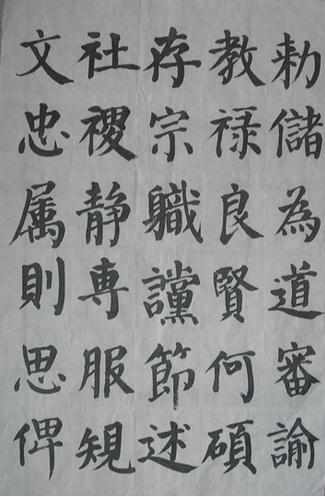 勅儲為道審諭
教禄良賢何碩
存宗職讜節述
社禝静専服規
文忠属則思俾